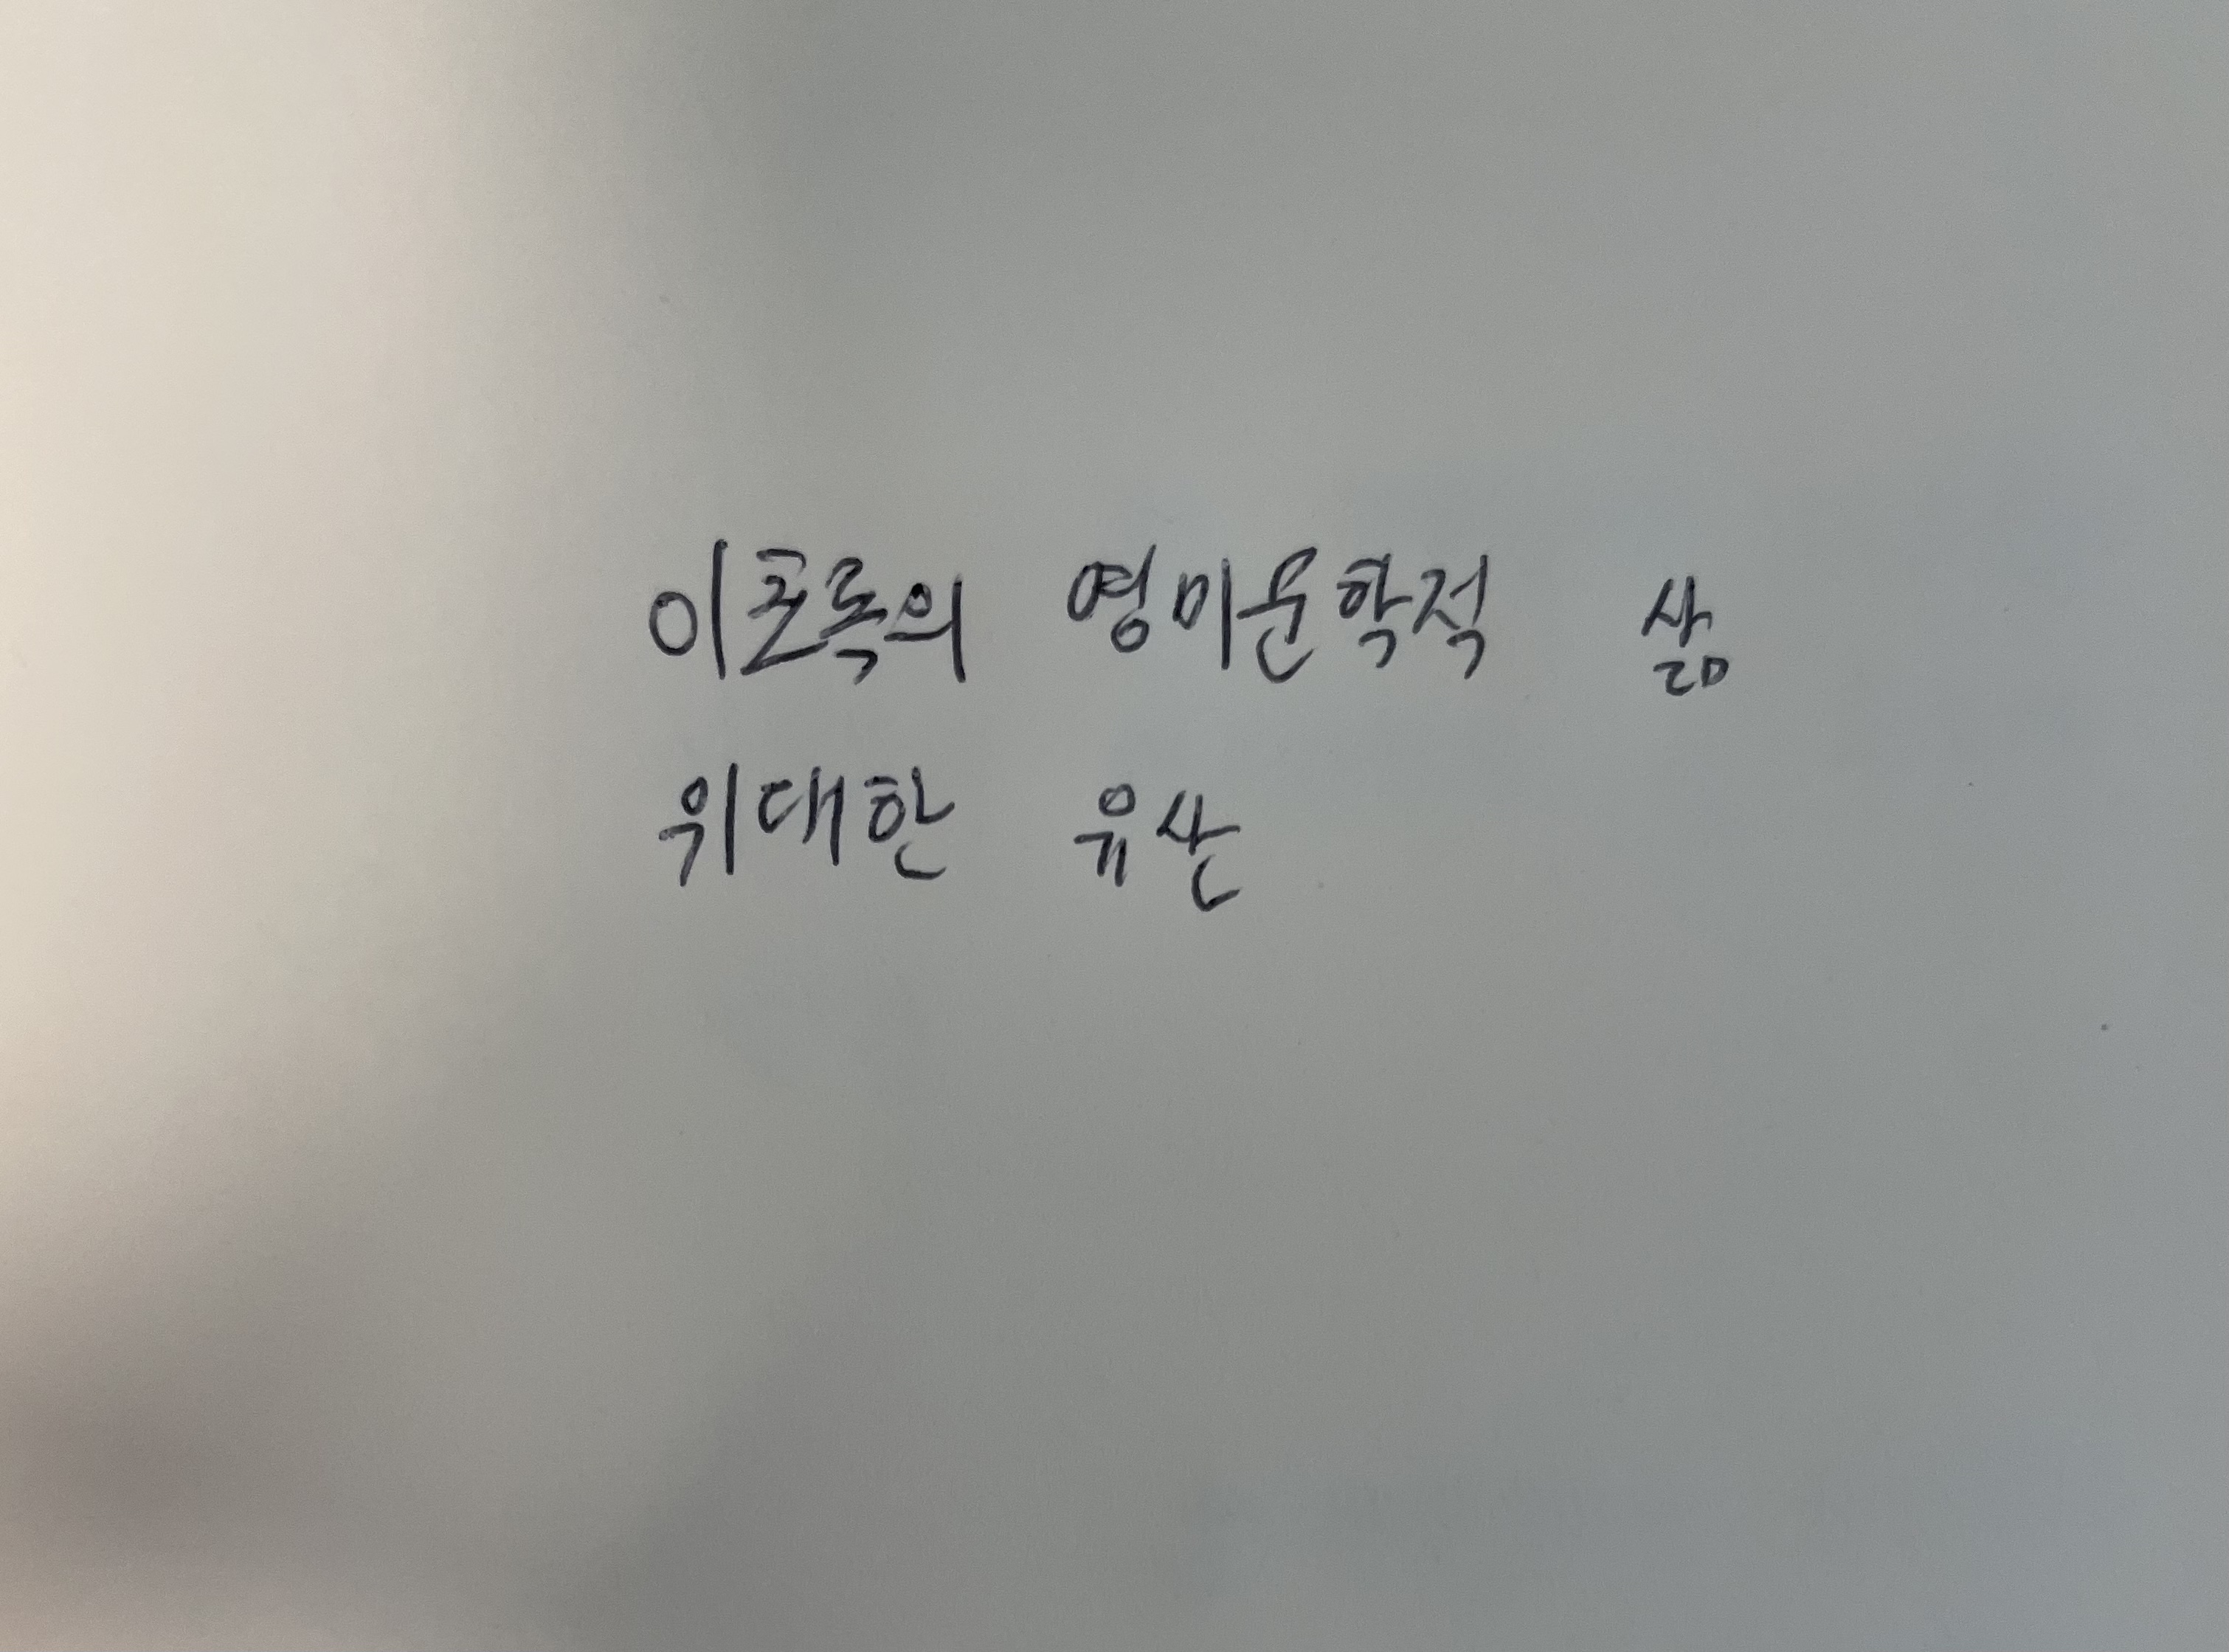 이초록의 영미문학적 삶
위대한 유산